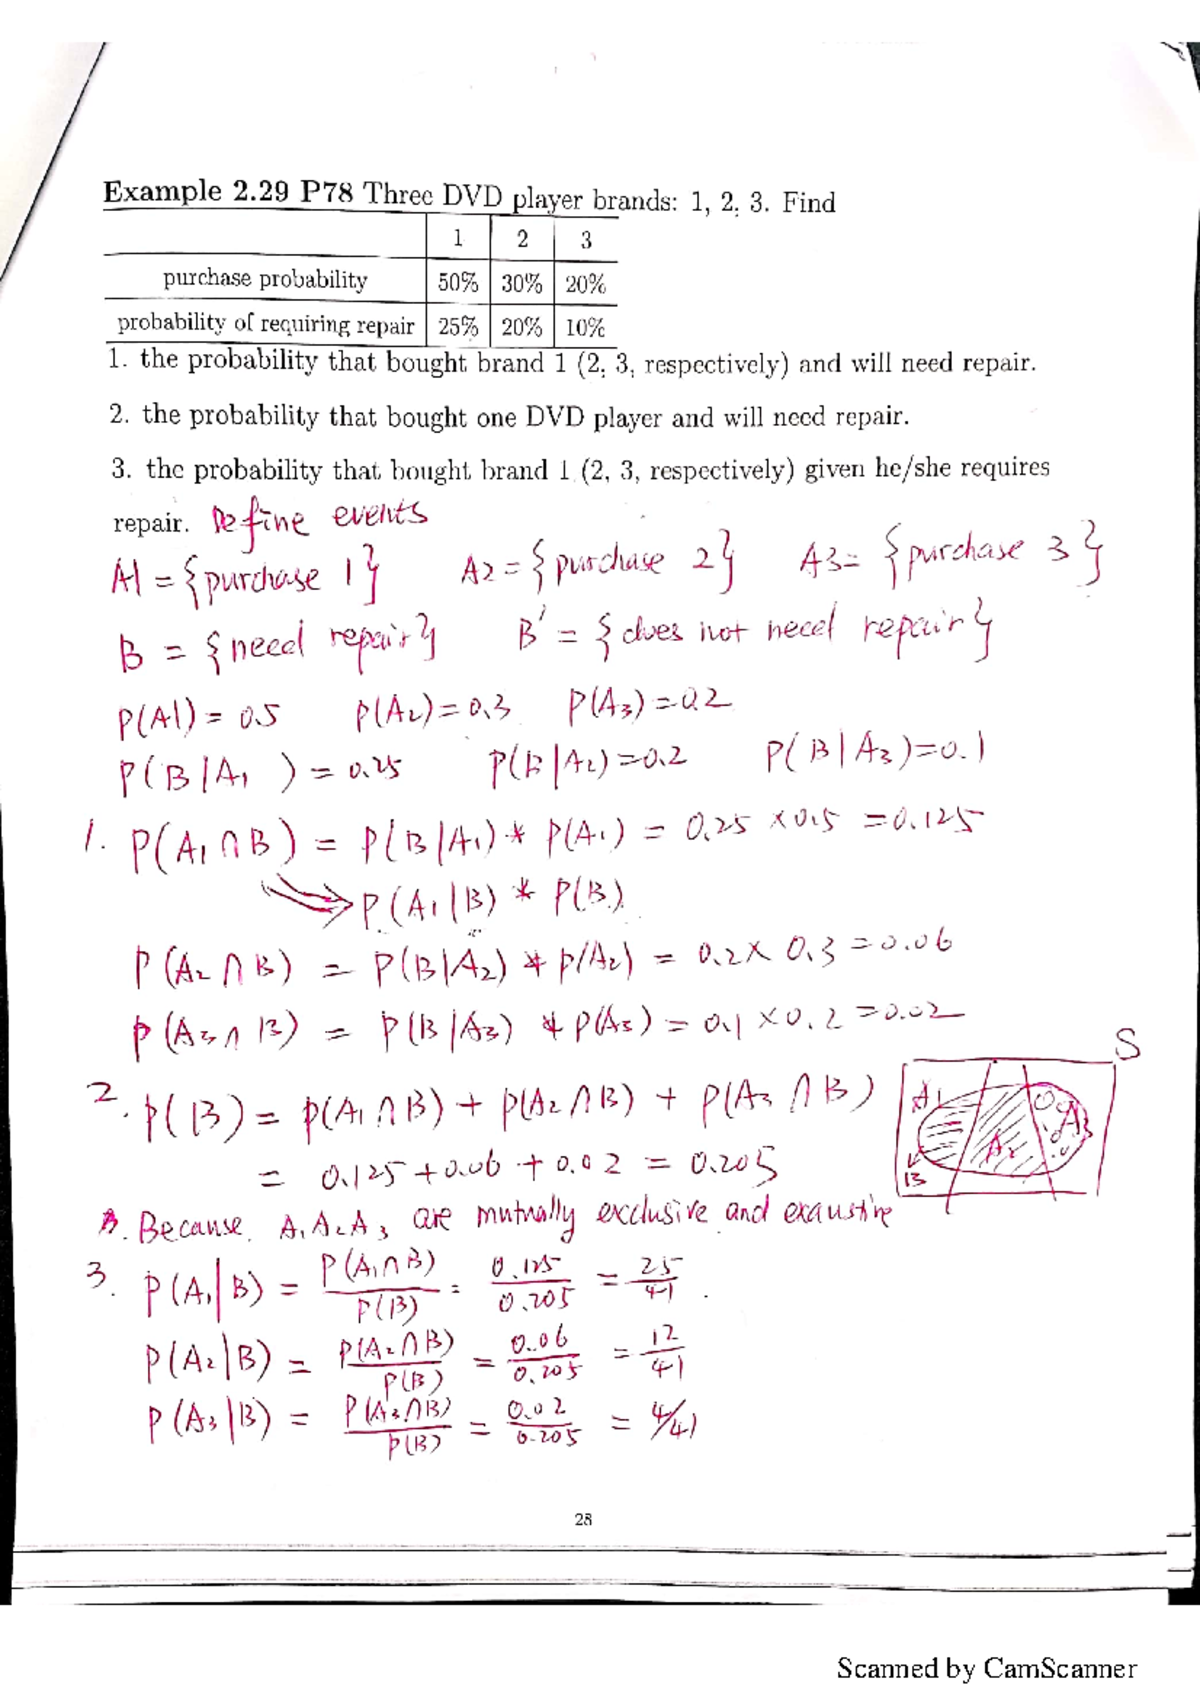 Example 2.29 P78 Three DVD player brands: 1, 2, 3. Find
1 2 3
purchase probability 50% 30% 20%
probability of requiring repair 25% 20% 10%
1. the probability that bought brand 1 (2, 3, respectively) and will need repair.
2. the probability that bought one DVD player and will need repair.
3. the probability that bought brand 1 (2, 3, respectively) given he/she requires
repair. Define events
A1 = {purchase 1} A2 = {purchase 2} A3 = {purchase 3}
B = {need repair} B' = {does not need repair}
P(A1) = 0.5 P(A2) = 0.3 P(A3) = 0.2
P(B|A1) = 0.25 P(B|A2) = 0.2 P(B|A3) = 0.1
1. P(A1 ∩ B) = P(B|A1) * P(A1) = 0.25 × 0.5 = 0.125
P(A1|B) * P(B)
P(A2 ∩ B) = P(B|A2) * P(A2) = 0.2 × 0.3 = 0.06
P(A3 ∩ B) = P(B|A3) * P(A3) = 0.1 × 0.2 = 0.02
S
2. P(B) = P(A1 ∩ B) + P(A2 ∩ B) + P(A3 ∩ B)
A1 A2 A3
B
= 0.125 + 0.06 + 0.02 = 0.205
Because A1 A2 A3 are mutually exclusive and exaustive
3. P(A1|B) = P(A1∩B)/P(B) = 0.125/0.205 = 25/41
P(A2|B) = P(A2∩B)/P(B) = 0.06/0.205 = 12/41
P(A3|B) = P(A3∩B)/P(B) = 0.02/0.205 = 4/41
28
Scanned by CamScanner